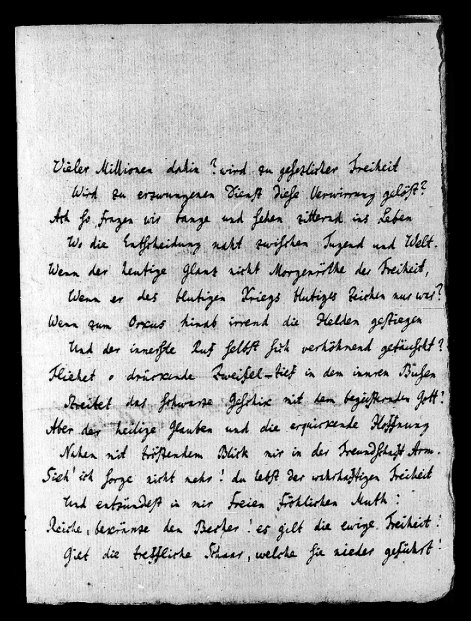 Vieler Millionen dahin? wird zu gesezlicher Freiheit
Wird zu erzwungenen Dienst diese Verwirrung gelöst?
Ach so fragen wir bange und sehen zitternd ins Leben
Wo die Entscheidung naht zwischen Tugend und Welt.
Wenn der heutige Glanz nicht Morgenröthe der Freiheit,
Wenn er des blutigen Kriegs blutiges Zeichen nur war?
Wenn zum Orcus hinab irrend die Helden gestiegen
Und der innerste Ruf selbst sich verhöhnend getäuscht?
Fliehet o drückende Zweifel tief in den innren Busen
Streitet das schwarze Geschik mit dem begeisternden Gott!
Aber der heilige Glauben und die erquickende Hoffnung
Nahen mit tröstendem Blick mir in der Freundschaft Arm.
Sieh! ich sorge nicht mehr! du lebst der wahrhaftigen Freiheit
Und entzündest in mir Freien fröhlichen Muth:
Reiche, bekränze den Becher! es gilt die ewige Freiheit!
Gilt die treffliche Schaar, welche sie nieder geführt!